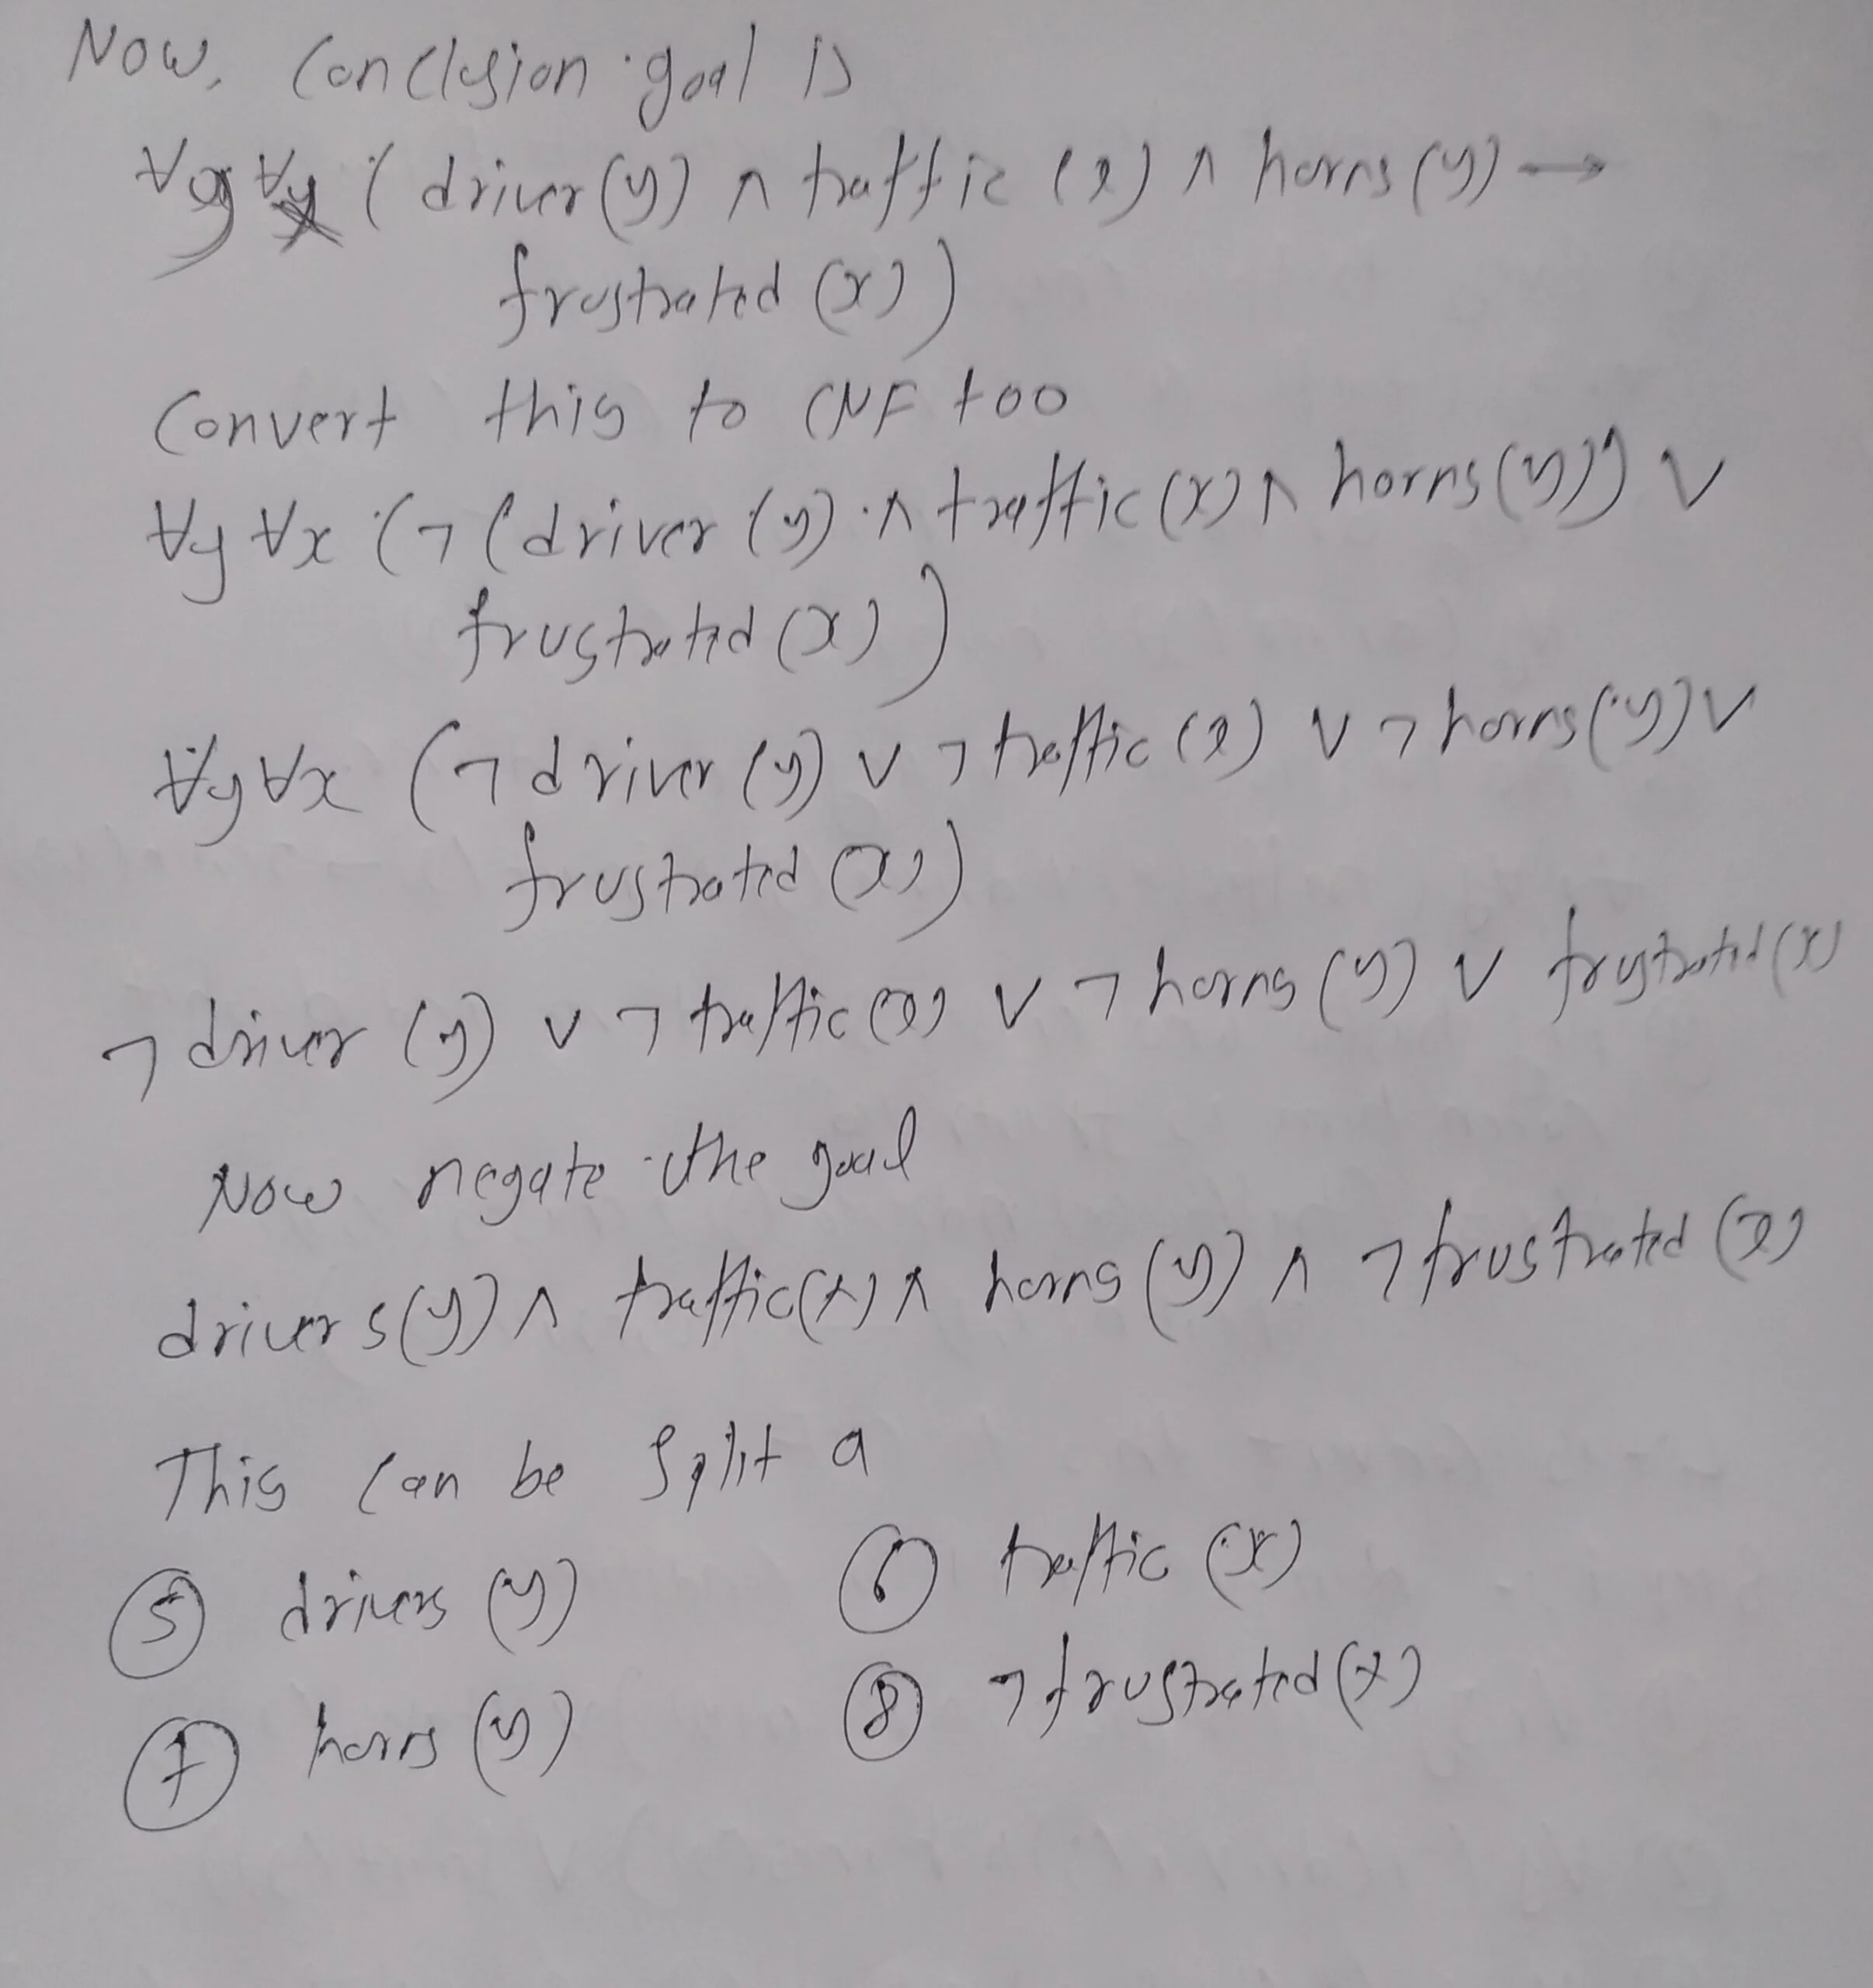 Now, Conclusion goal is
∀y ∀x ( driver(y) ∧ traffic (x) ∧ horns (y) →
frustrated (x))
Convert this to CNF too
∀y ∀x (¬ (driver (y) ∧ traffic (x) ∧ horns (y)) ∨
frustrated (x))
∀y ∀x (¬ driver (y) ∨ ¬ traffic (x) ∨ ¬ horns (y) ∨
frustrated (x))
¬ driver (y) ∨ ¬ traffic (x) ∨ ¬ horns (y) ∨ frustrated (x)
Now negate the goal
drivers (y) ∧ traffic (x) ∧ horns (y) ∧ ¬ frustrated (x)
This can be split a
⑤ drivers (y) ⑥ traffic (x)
⑦ horns (y) ⑧ ¬ frustrated (x)